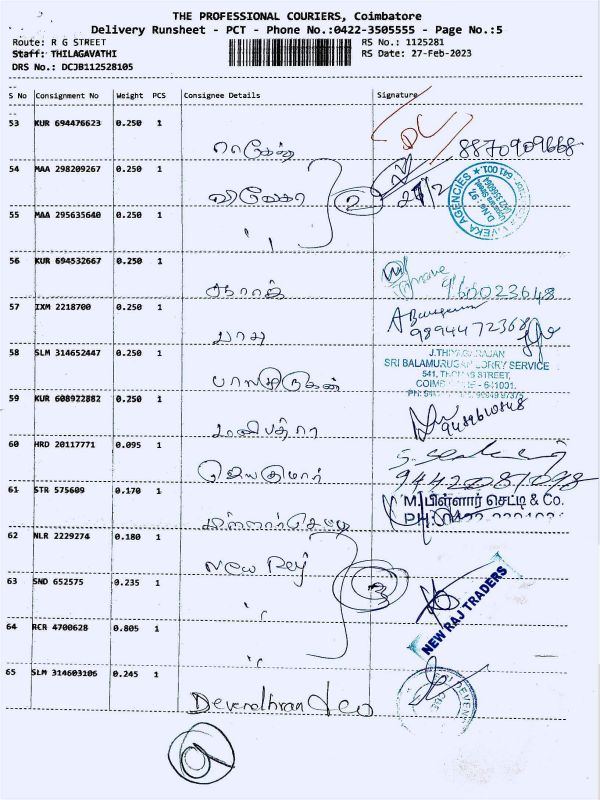 THE PROFESSIONAL COURIERS, Coimbatore
Delivery Runsheet - PCT - Phone No.:0422-3505555 - Page No.:5
Route: R G STREET RS No.: 1125281
Staff: THILAGAVATHI RS Date: 27-Feb-2023
DRS No.: DCJB112528105
S No Consignment No Weight PCS Consignee Details Signature
53 KUR 694476623 0.250 1
DC
8870909668
54 MAA 298209267 0.250 1
2
55 MAA 295635640 0.250 1
VIVEKA AGENCIES
641 001.
56 KUR 694532667 0.250 1
960023648
57 IXM 2218700 0.250 1
9894472368
58 SLM 314652447 0.250 1
பாலமுருகன்
J.THIYAGARAJAN
SRI BALAMURUGAN LORRY SERVICE
541, THOMAS STREET,
COIMBATORE - 641001.
59 KUR 608922882 0.250 1
60 HRD 20117771 0.095 1
ஜெயகுமார்
9442081098
61 STR 575609 0.170 1
பிள்ளார் செட்டி
M.பிள்ளார் செட்டி & Co.
62 NLR 2229274 0.180 1
New Raj
63 SND 652575 0.235 1
3
NEW RAJ TRADERS
64 RCR 4700628 0.805 1
65 SLM 314603106 0.245 1
Devendhran & co